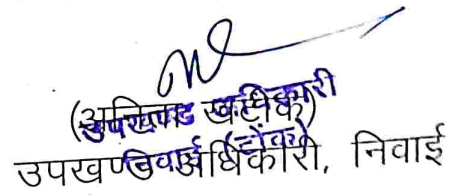 (अनिता खटीक)
उपखण्ड अधिकारी
निवाई (टोंक)
उपखण्ड अधिकारी, निवाई